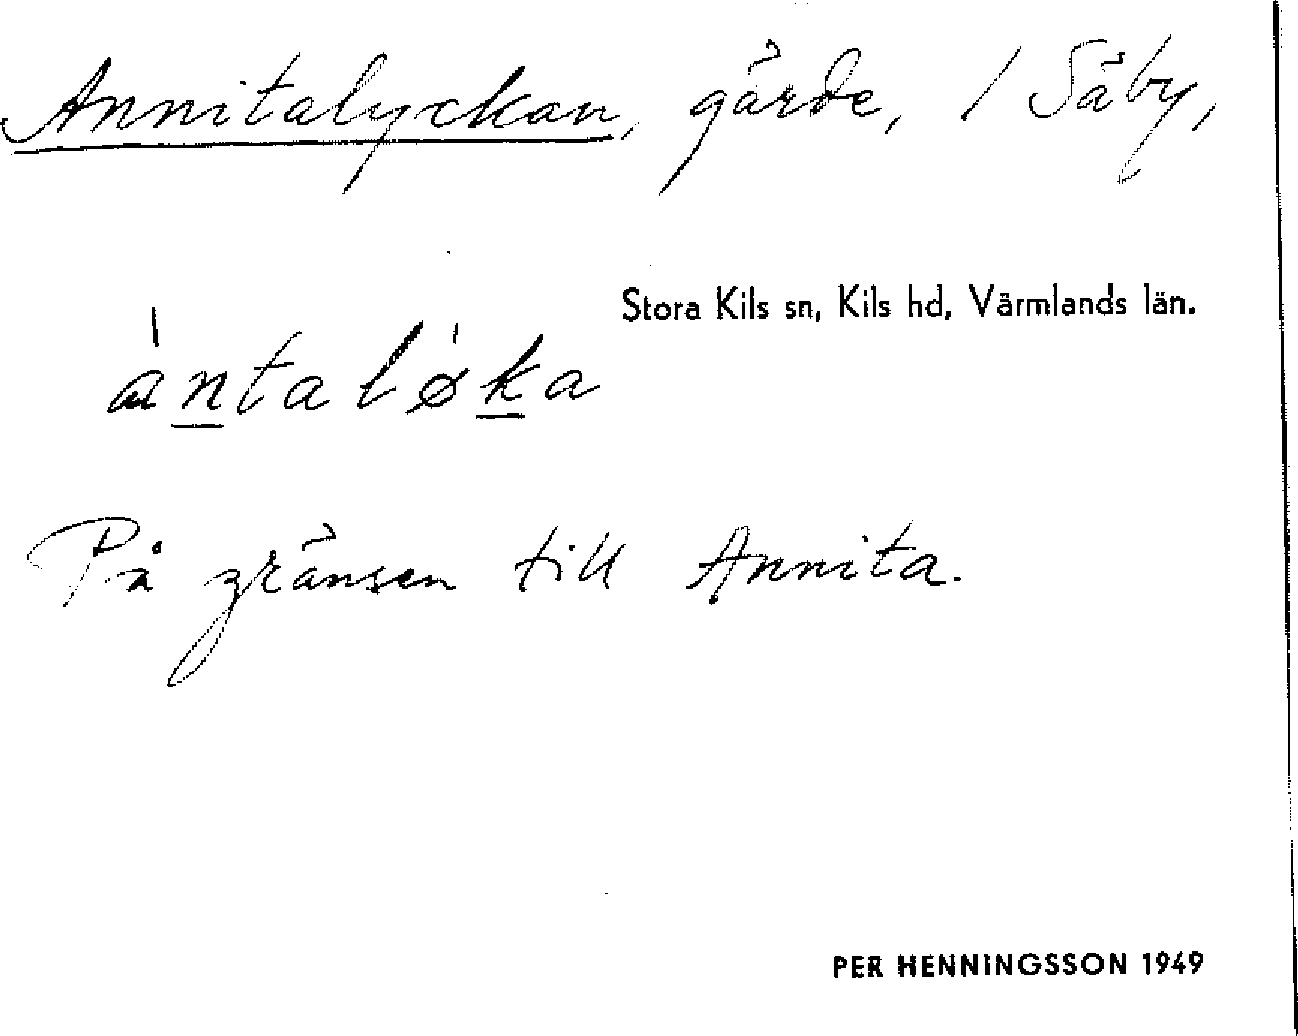 Annitalyckan, gärde, / Säby,
Stora Kils sn, Kils hd, Värmlands län.
àntaløka
På gränsen till Annita.
PER HENNINGSSON 1949